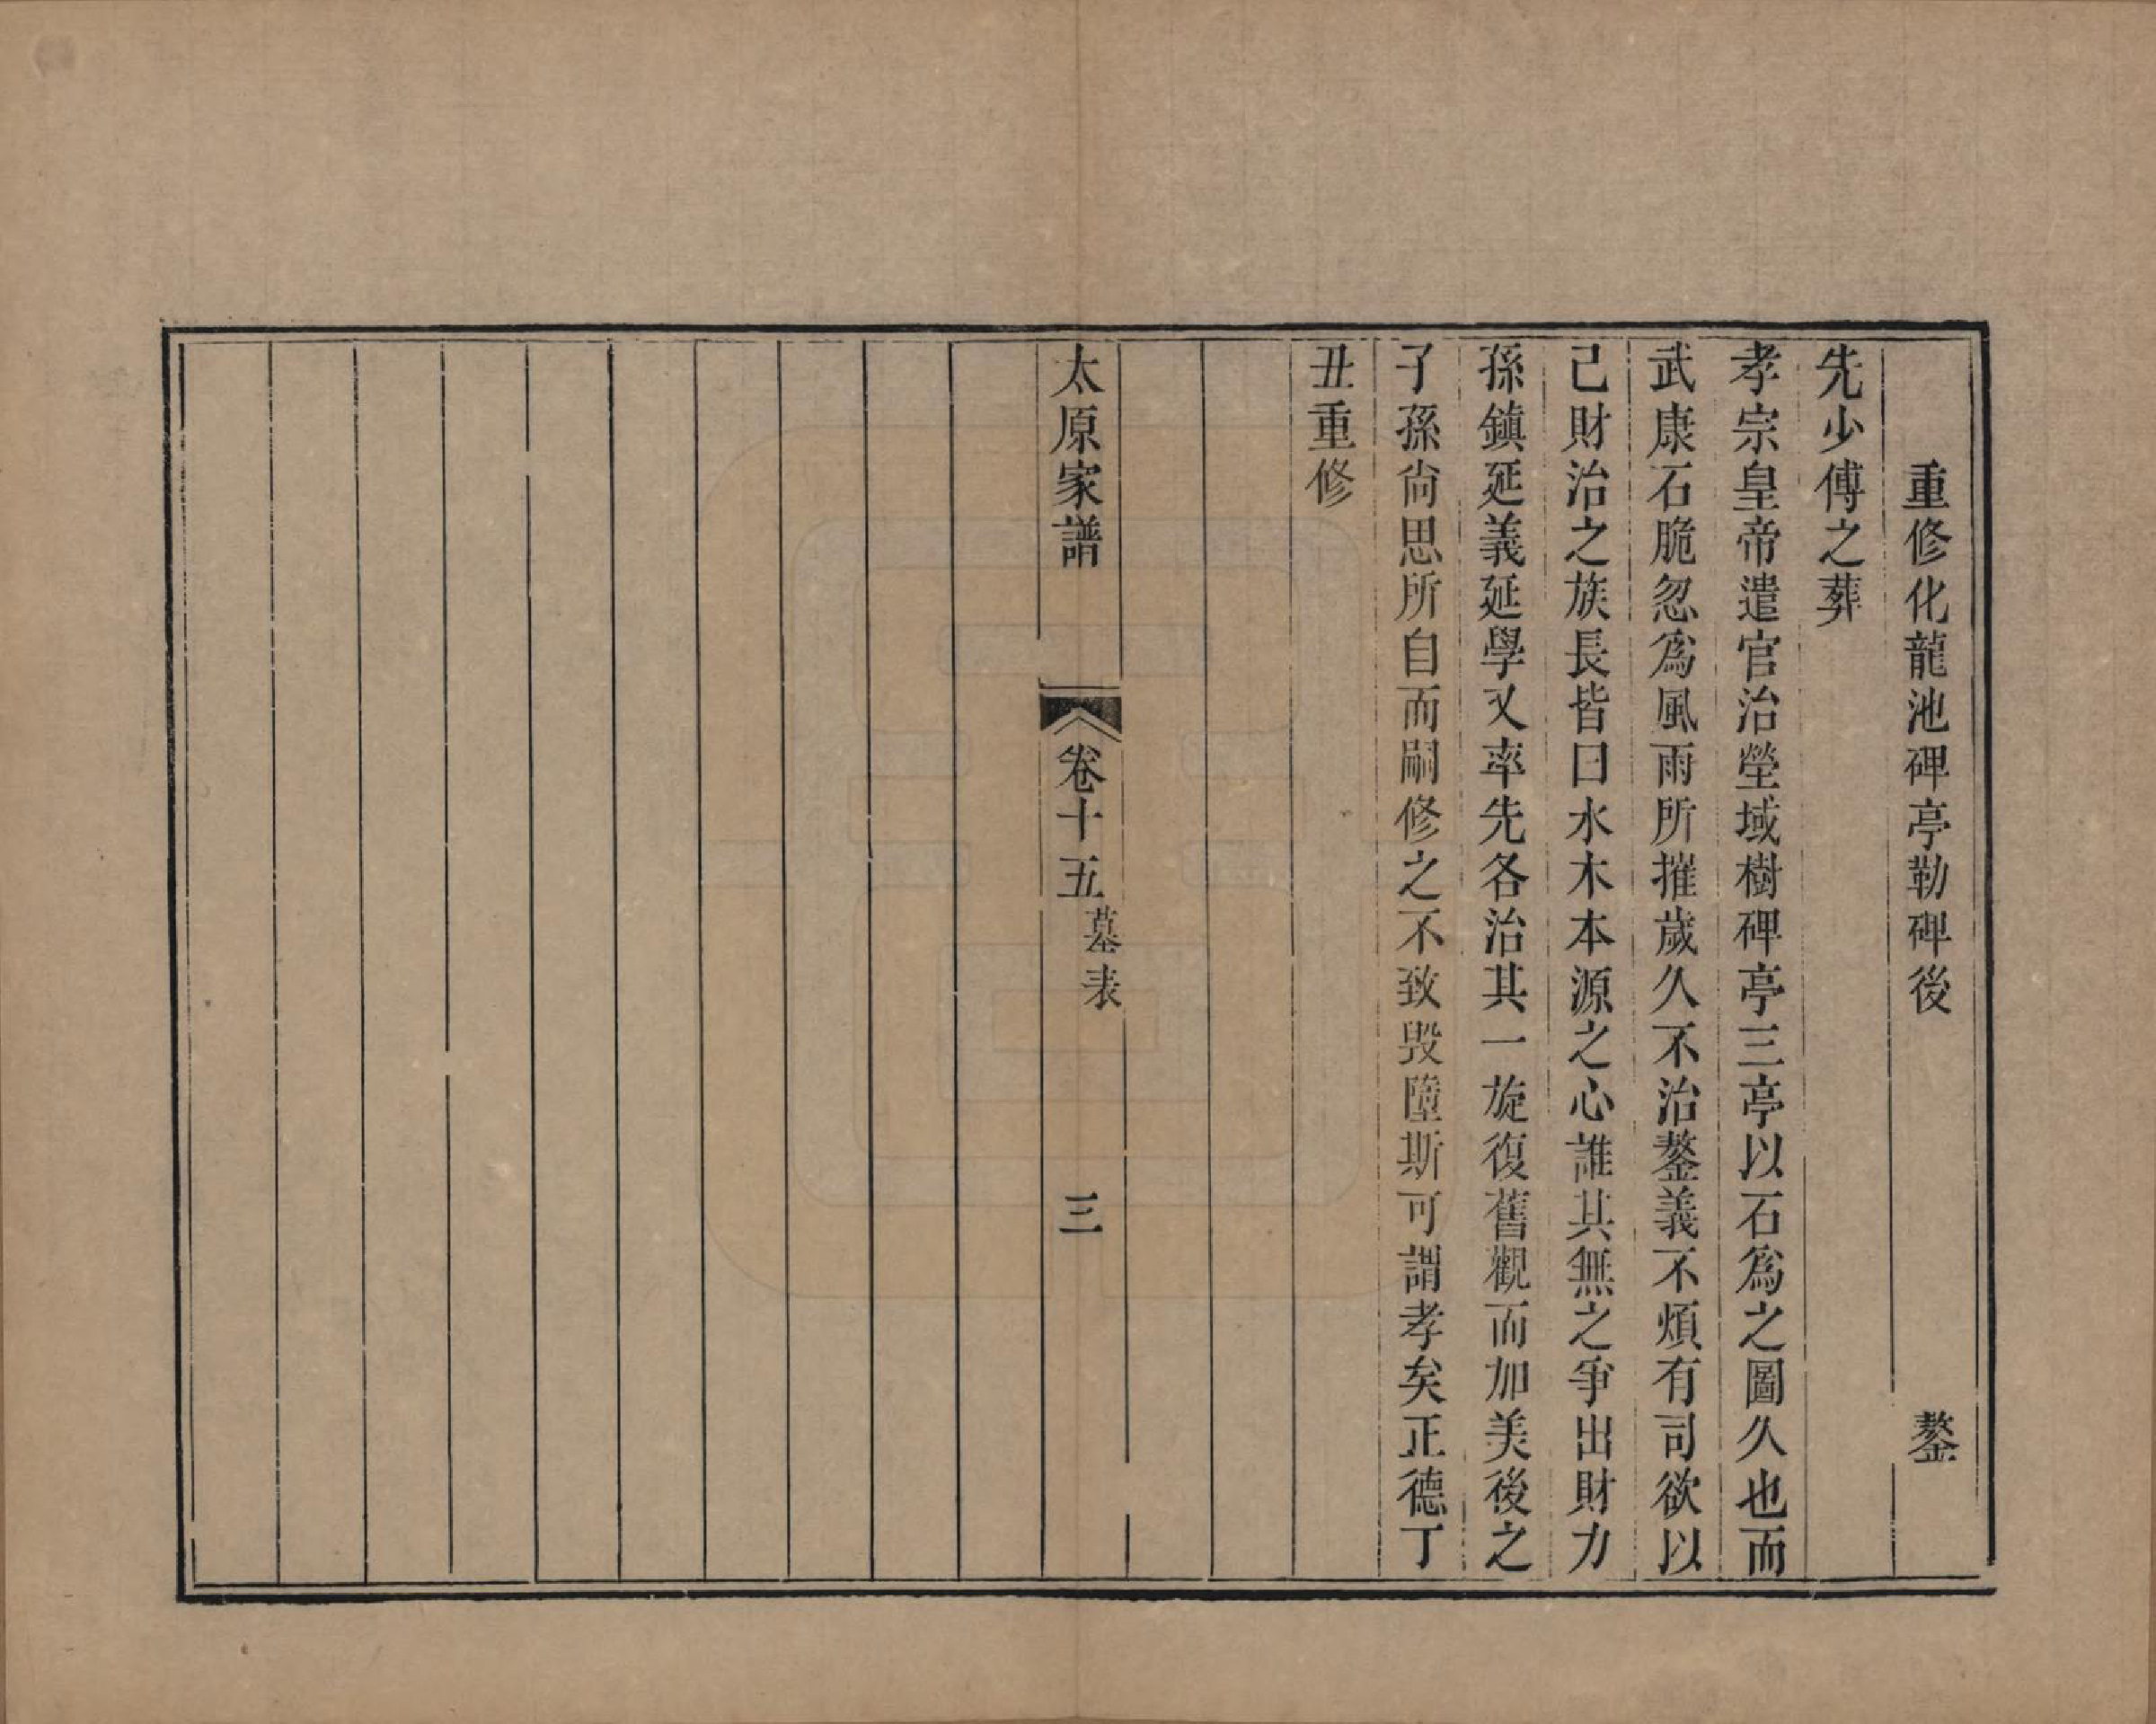 重修化龍池碑亭勒碑後　鏊
先少傅之葬
孝宗皇帝遣官治塋域樹碑亭三亭以石爲之圖久也而
武康石脆忽爲風雨所摧歲久不治鏊義不煩有司欲以
己財治之族長皆曰水木本源之心誰其無之爭出財力
孫鎮延義延學又率先各治其一旋復舊觀而加美後之
子孫尚思所自而嗣修之不致毀墮斯可謂孝矣正德丁
丑重修
太原家譜　卷十五　墓表　三